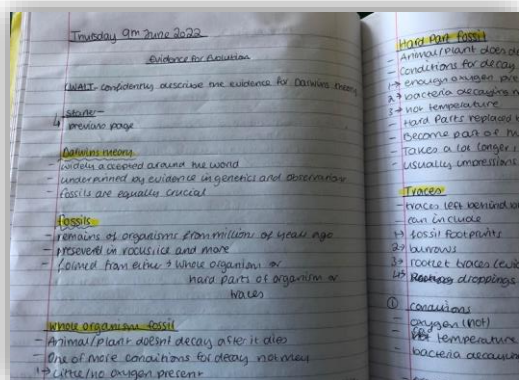 Thursday 9th June 2022
Evidence for Evolution
LWALT- confidently describe the evidence for Darwins theory
Starter-
previous page
Darwins theory
- widely accepted around the world
- underpinned by evidence in genetics and observation
- fossils are equally crucial
fossils
- remains of organisms from millions of years ago
- preseverd in rocks, ice and more
- formed from either → whole organism or
hard parts of organism or
traces
whole organism fossil
- Animal/plant doesnt decay after it dies
- One of more conditions for decay not met
1→ Little/no oxygen present
Hard Part fossil
- Animal/plant does
- Conditions for decay
1→ enough oxygen
2→ bacteria decaying
3→ hot temperature
- Hard Parts replaced
- Become part of
- Takes a lot longer
- usually impressions
Traces
- traces left behind
- can include
1→ fossil footprints
2→ burrows
3→ rootlet traces
4→ droppings
① conditions
- oxygen (not)
- temperature
- bacteria decaying